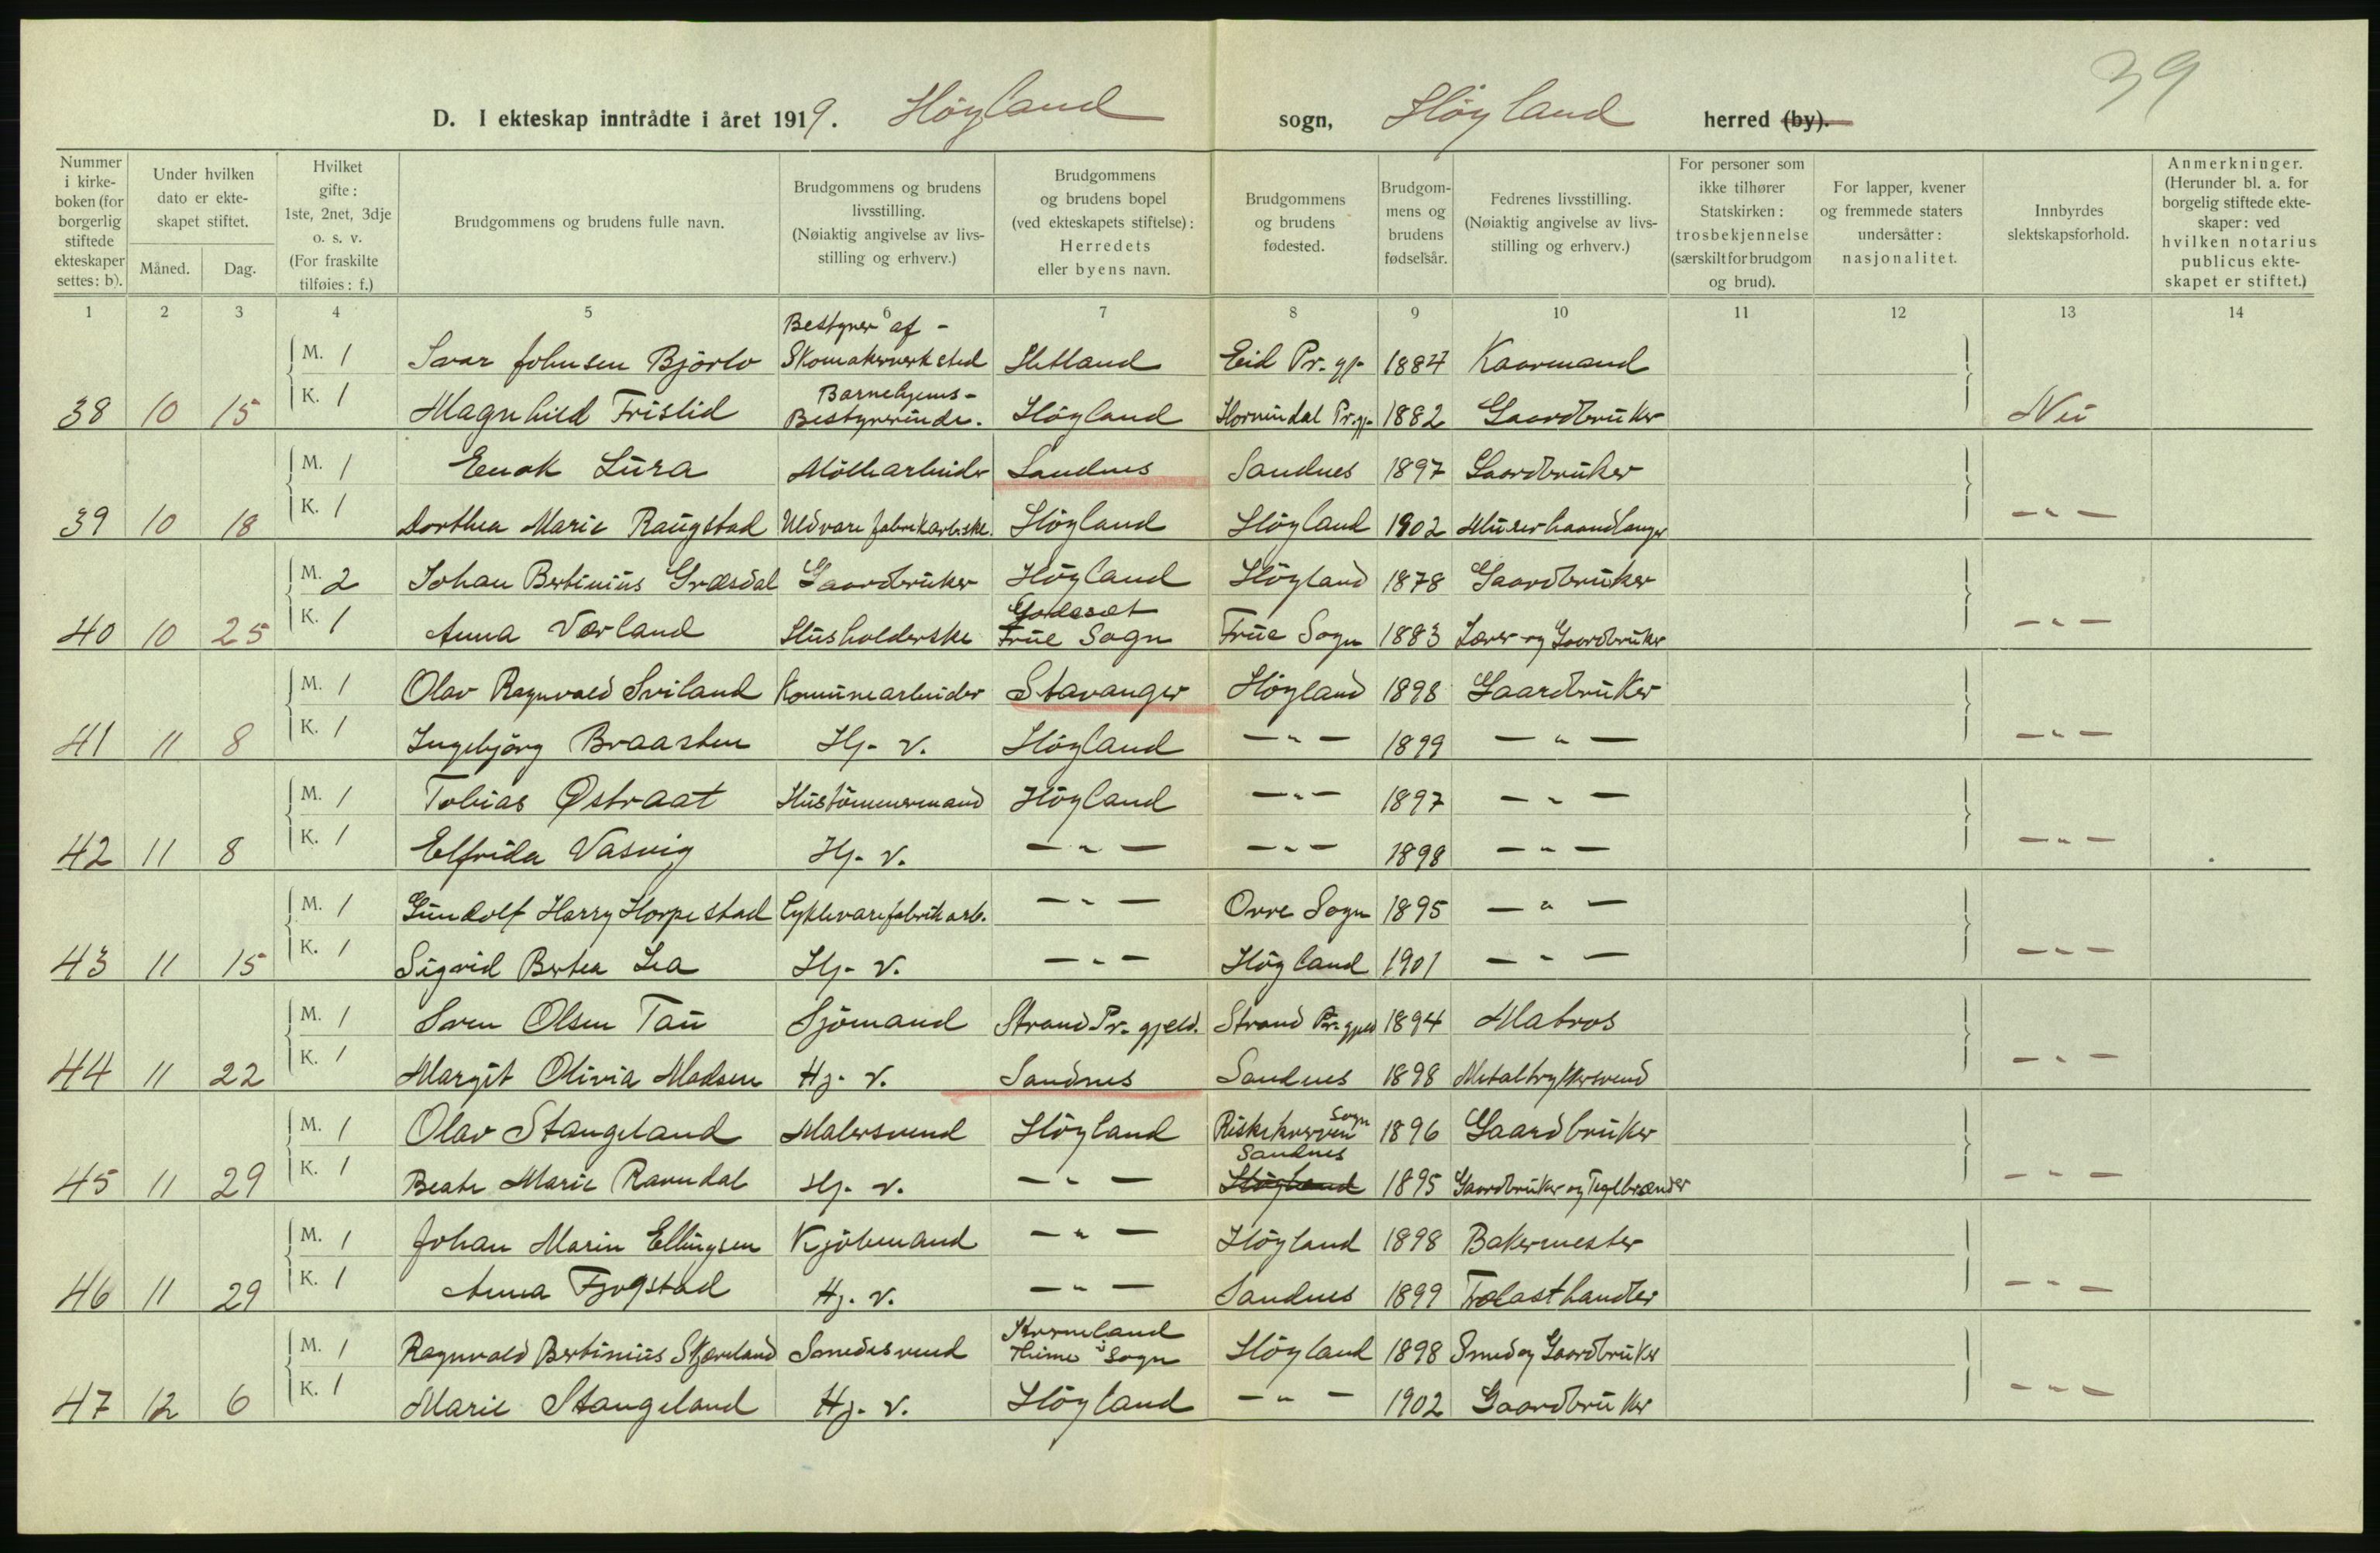 39
D. I ekteskap inntrådte i året 1919. Höyland sogn, Höyland herred (by).
Nummer i kirkeboken (for borgerlig stiftede ekteskaper settes: b).
Under hvilken dato er ekteskapet stiftet.
Måned. Dag.
Hvilket gifte: 1ste, 2net, 3dje o. s. v. (For fraskilte tilføies: f.)
Brudgommens og brudens fulle navn.
Brudgommens og brudens livsstilling. (Nøiaktig angivelse av livsstilling og erhverv.)
Brudgommens og brudens bopel (ved ekteskapets stiftelse): Herredets eller byens navn.
Brudgommens og brudens fødested.
Brudgommens og brudens fødselsår.
Fedrenes livsstilling. (Nøiaktig angivelse av livsstilling og erhverv.)
For personer som ikke tilhører Statskirken: trosbekjennelse (særskilt for brudgom og brud).
For lapper, kvener og fremmede staters undersåtter: nasjonalitet.
Innbyrdes slektskapsforhold.
Anmerkninger. (Herunder bl. a. for borgelig stiftede ekteskaper: ved hvilken notarius publicus ekteskapet er stiftet.)
1 2 3 4 5 6 7 8 9 10 11 12 13 14
M. 1 Ivar Johnsen Bjørlo Bestyrer af - Skomakerverksted Hetland Eid Pr. gj. 1884 Kaarmand
38 10 15 K. 1 Magnhild Frislid Barnehjems- Bestyrerinde. Höyland Hornindal Pr.gj. 1882 Gaardbruker Nei
M. 1 Enok Lura Möllearbeider Sandnes Sandnes 1897 Gaardbruker
39 10 18 K. 1 Dorthea Marie Raugstad Uldvarefabrikarb.ske. Höyland Höyland 1902 Murerhaandlanger - " -
M. 2 Johan Bertinius Græsdal Gaardbruker Höyland Höyland 1878 Gaardbruker
40 10 25 K. 1 Anna Værland Husholderske Godeset Frue Sogn Frue Sogn 1883 Lærer og Gaardbruker - " -
M. 1 Olav Ragnvald Sviland Komunearbeider Stavanger Höyland 1898 Gaardbruker
41 11 8 K. 1 Ingebjörg Braasten Hj. v. Höyland - " - 1899 - " - - " -
M. 1 Tobias Østraat Hustömmermand Höyland - " - 1897 - " -
42 11 8 K. 1 Elfrida Vasvig Hj. v. - " - - " - 1898 - " - - " -
M. 1 Gundolf Harry Horpestad Cyklevarefabrik arb. - " - Orre Sogn 1895 - " -
43 11 15 K. 1 Sigrid Bertea Lea Hj. v. - " - Höyland 1901 - " - - " -
M. 1 Soren Olsen Tau Sjömand Strand Pr. gjeld. Strand Pr. gjeld 1894 Matros
44 11 22 K. 1 Margit Olivia Madsen Hj. v. Sandnes Sandnes 1898 Metaltrykkersvend - " -
M. 1 Olav Stangeland Malersvend Höyland Riskekverven Sogn 1896 Gaardbruker
45 11 29 K. 1 Beate Marie Ravndal Hj. v. - " - Sandnes Höyland 1895 Gaardbruker og Teglbrænder - " -
M. 1 Johan Marin Ellingsen Kjöbmand - " - Höyland 1898 Bakermester
46 11 29 K. 1 Anna Fjogstad Hj. v. - " - Sandnes 1899 Trælasthandler - " -
M. 1 Ragnvald Bertinius Skjæveland Smedesvend Kverneland i Thime Sogn Höyland 1898 Smed og Gaardbruker
47 12 6 K. 1 Marie Stangeland Hj. v. Höyland - " - 1902 Gaardbruker - " -